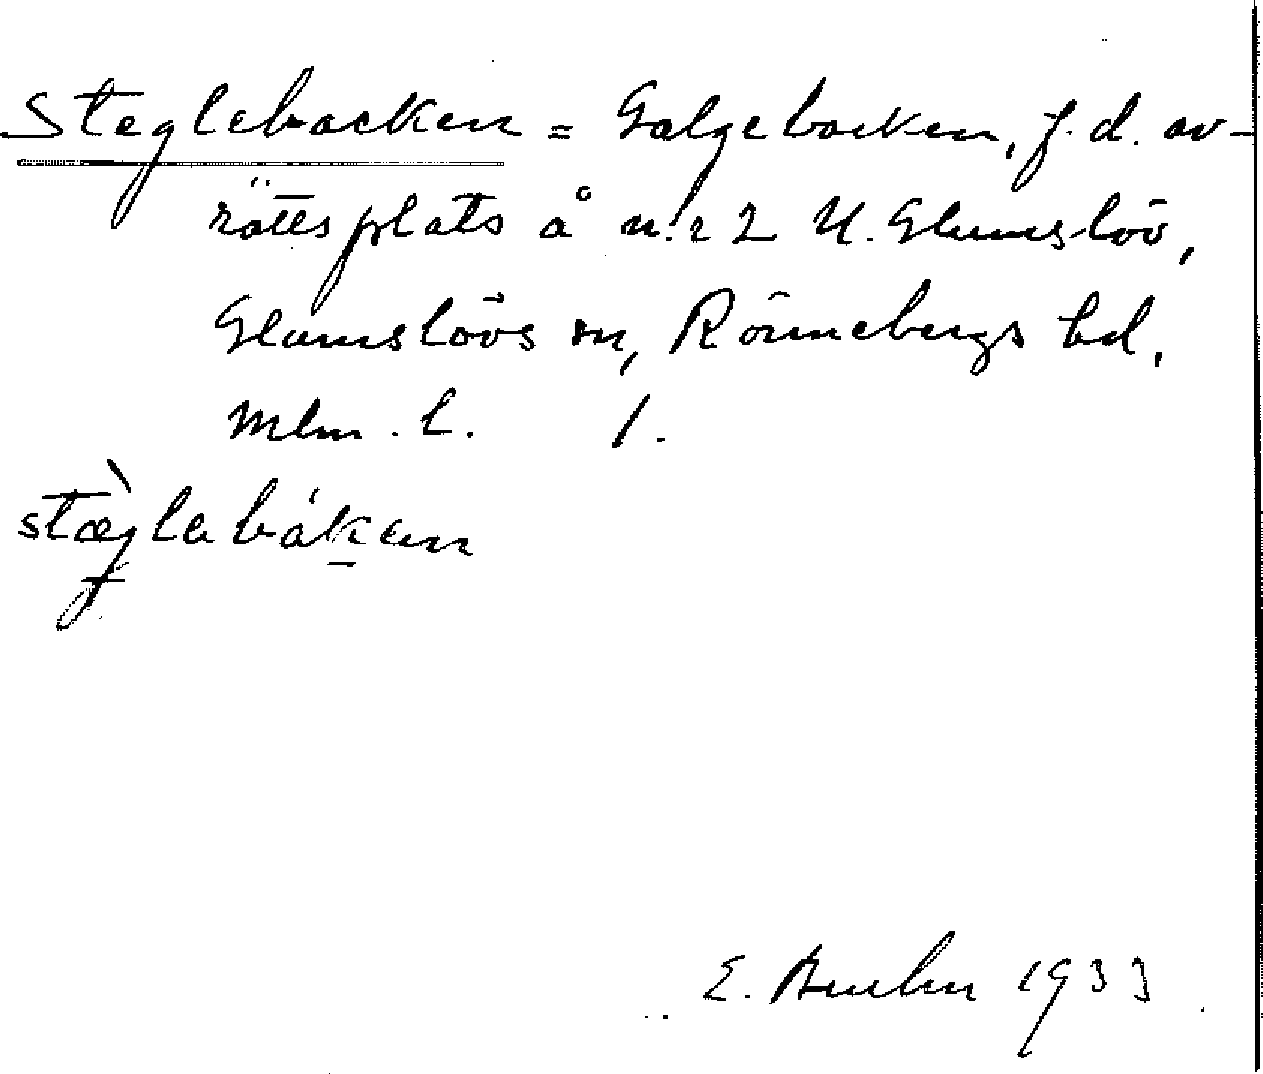 Steglebacken = Galgebacken, f.d. av-
rättsplats å n:r 2 N. Glumslöv,
Glumslövs sn, Rönnebergs hd,
Mlm. l. 1.
stæglabákan
E. 1933